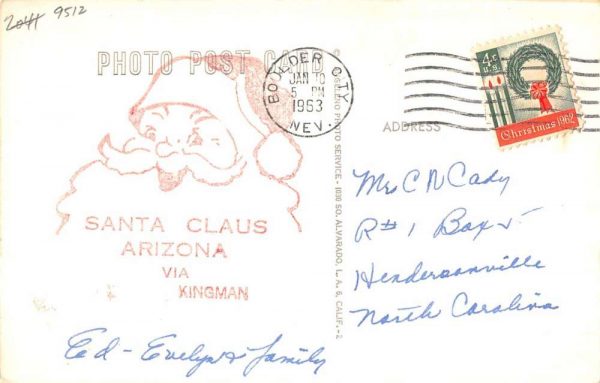 2044 9512
PHOTO POST CARD
BOULDER CITY
JAN 10
5 PM
1963
NEV.
4¢
U.S.
Christmas 1962
ADDRESS
SANTA CLAUS
ARIZONA
VIA
KINGMAN
PHOTO SERVICE - 1030 SO. ALVARADO, L. A. 6, CALIF.-2
Mrs C N Cady
R#1 Box
Hendersonville
North Carolina
Ed - Evelyn & family